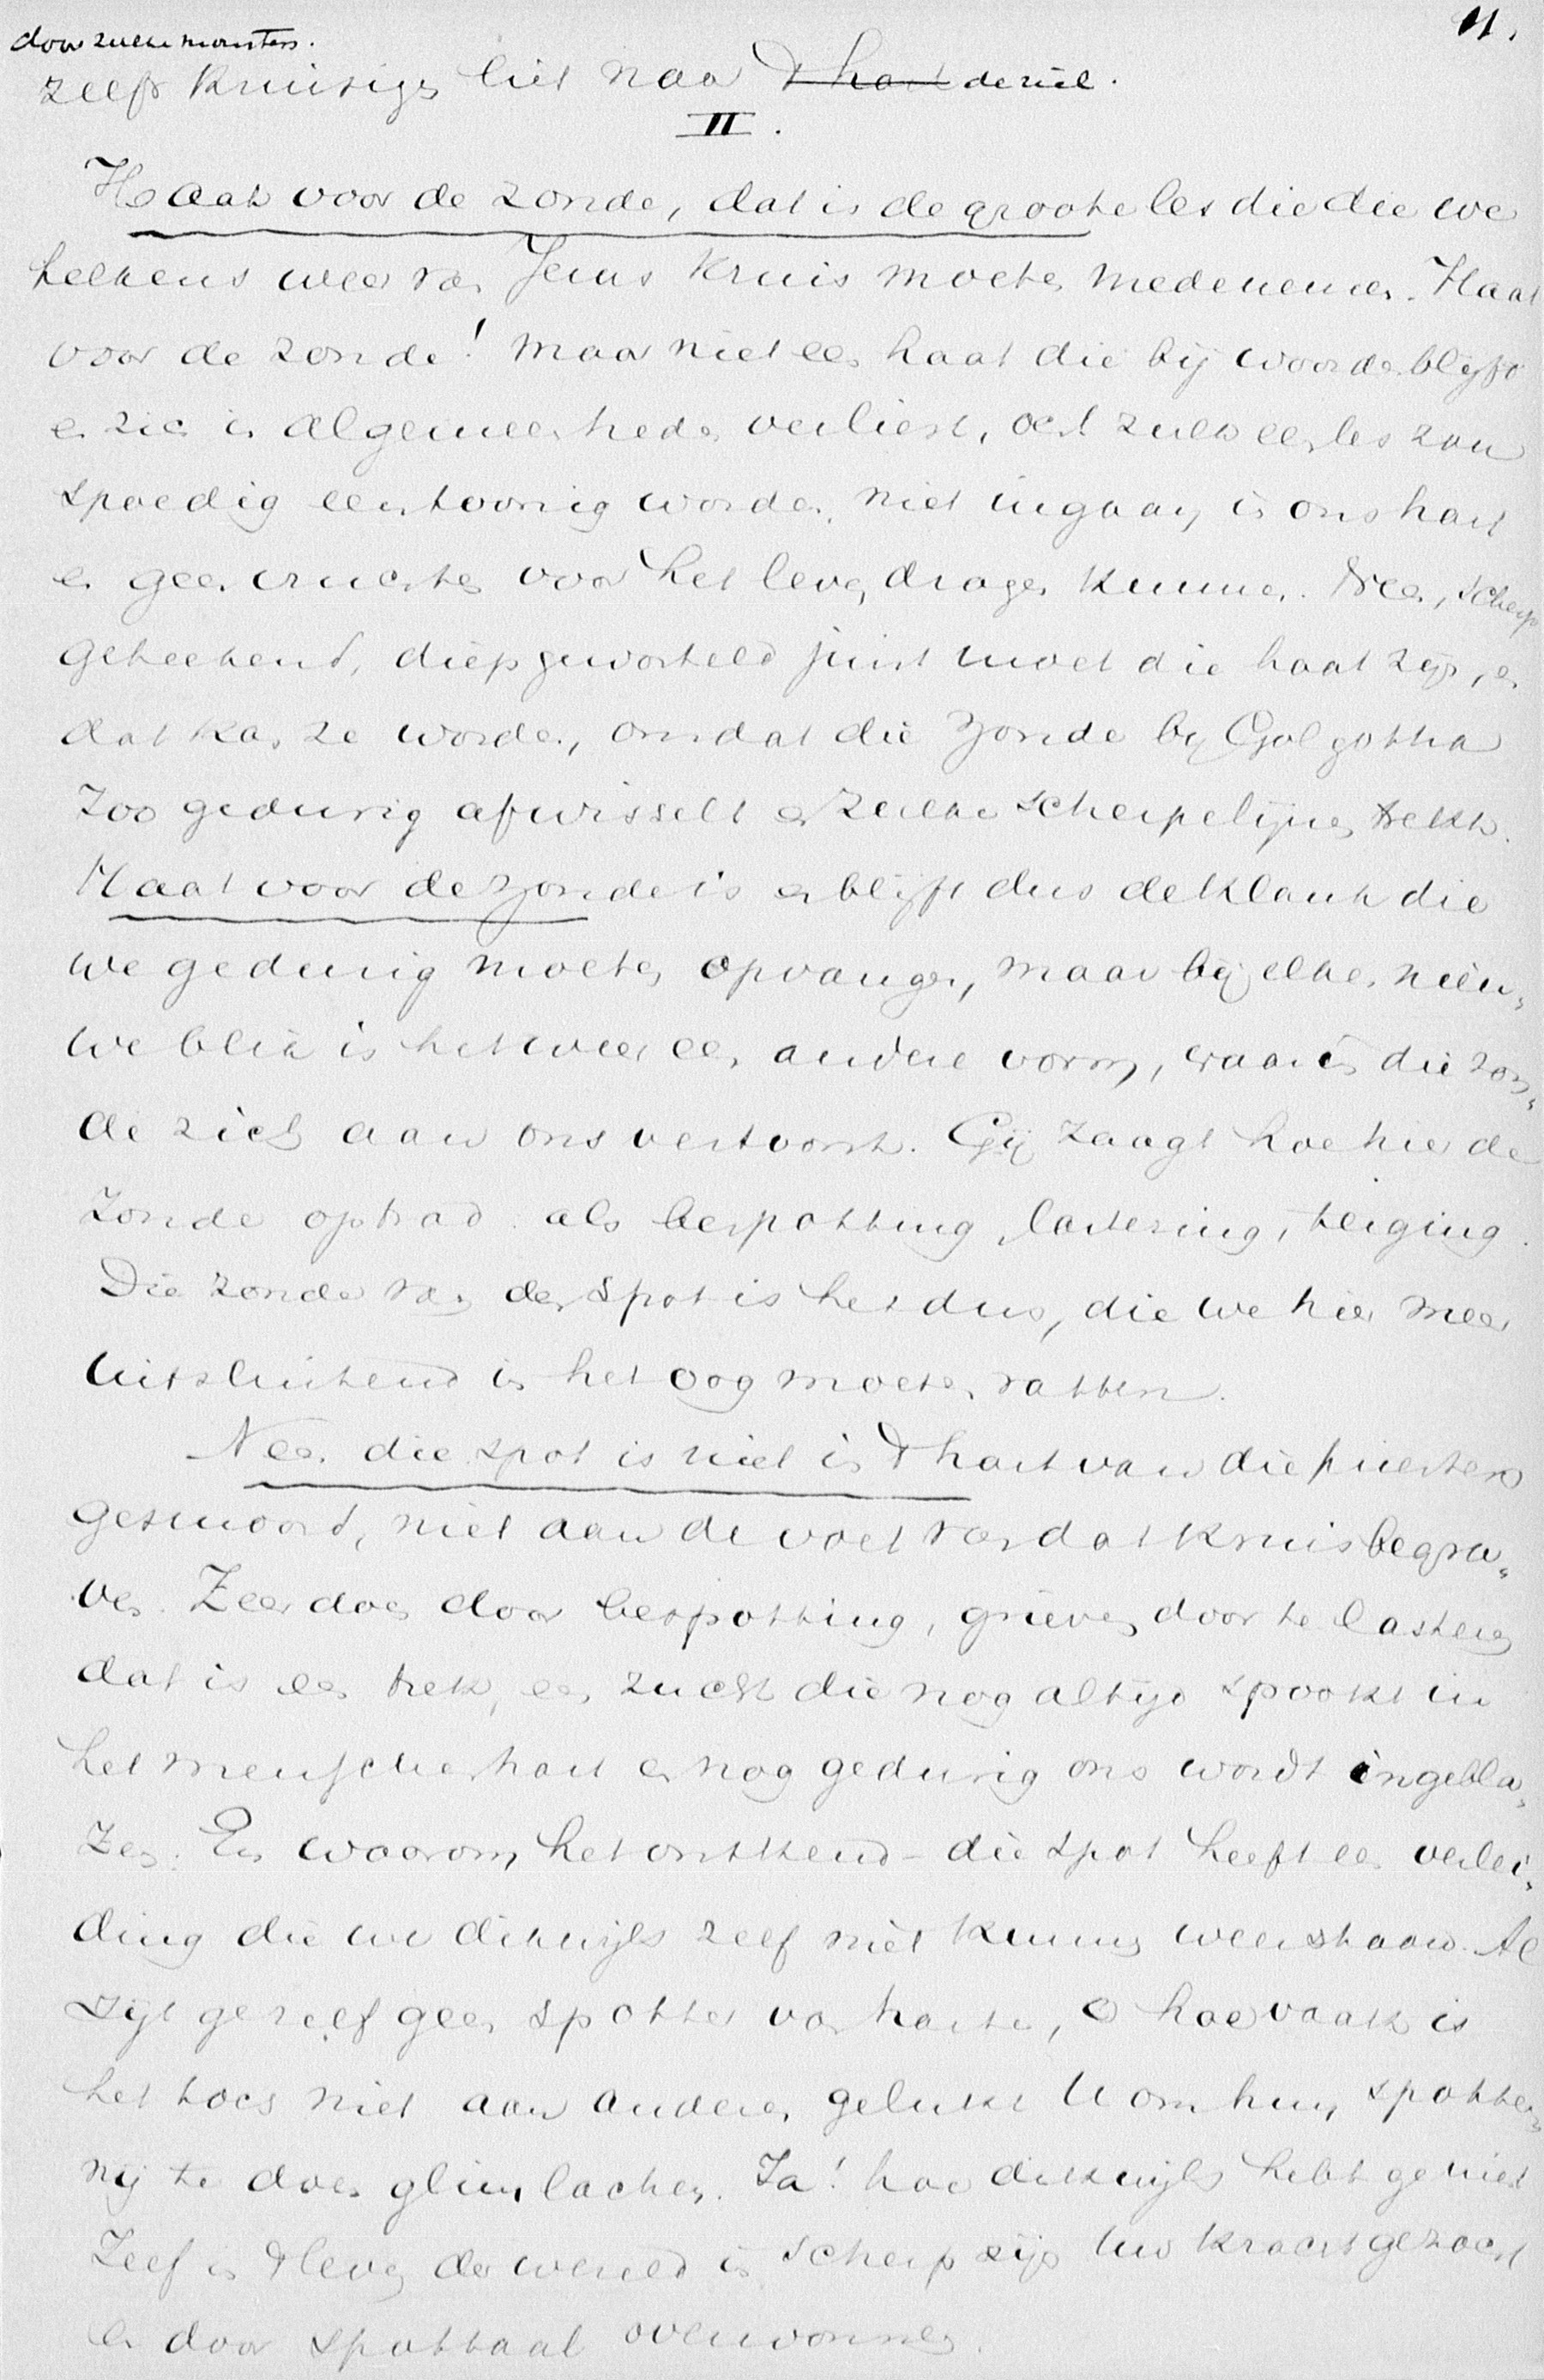 11.
door zulke monsters.
zelfs kruisigen liet naar 't hart de ziel.
II.
Haat voor de zonde, dat is de groote les die die we
telkens weer van Jezus kruis moeten medenemen. Haat
voor de zonde! Maar niet een haat die bij woorden blijft
en zich in algemeenheden verliest, och zulk een les zou
spoedig eentoonig worden, niet ingaan in ons hart
en geen vruchten voor het leven dragen kunnen. Neen, scherp
geteekend, diep geworteld juist moet die haat zijn, en
dat kan ze worden, omdat die zonde bij Golgotha
zoo gedurig afwisselt en zulke scherpe lijnen trekt.
Haat voor de zonde is en blijft dus de klank die
we gedurig moeten opvangen, maar bij elken nieu„
we blik is het weer een andere vorm, waarin die zon„
de zich aan ons vertoont. Gij zaagt hoe hier de
zonde optrad als bespotting, lastering, terging.
Die zonde van den spot is het dus, die we hier meer
uitsluitend in het oog moeten vatten.
Neen die spot is niet in 't hart van die priesters
gesmoord, niet aan de voet van dat kruis begra„
ven. Zeer doen door bespotting, grieven door te lasteren
dat is een trek, een zucht die nog altijd spookt in
het menschenhart en nog gedurig ons wordt ingebla„
zen. En waarom het ontkend - die spot heeft een verlei„
ding die we dikwijls zelf niet kunnen weerstaan. Al
zijt ge zelf geen spotter van harte, o hoe vaak is
het toch niet aan anderen gelukt U om hun spotter„
nij te doen glimlachen. Ja! hoe dikwijls hebt ge niet
zelf in 't leven der wereld in scherp zijn uw kracht gezocht
en door spottaal overwonnen.